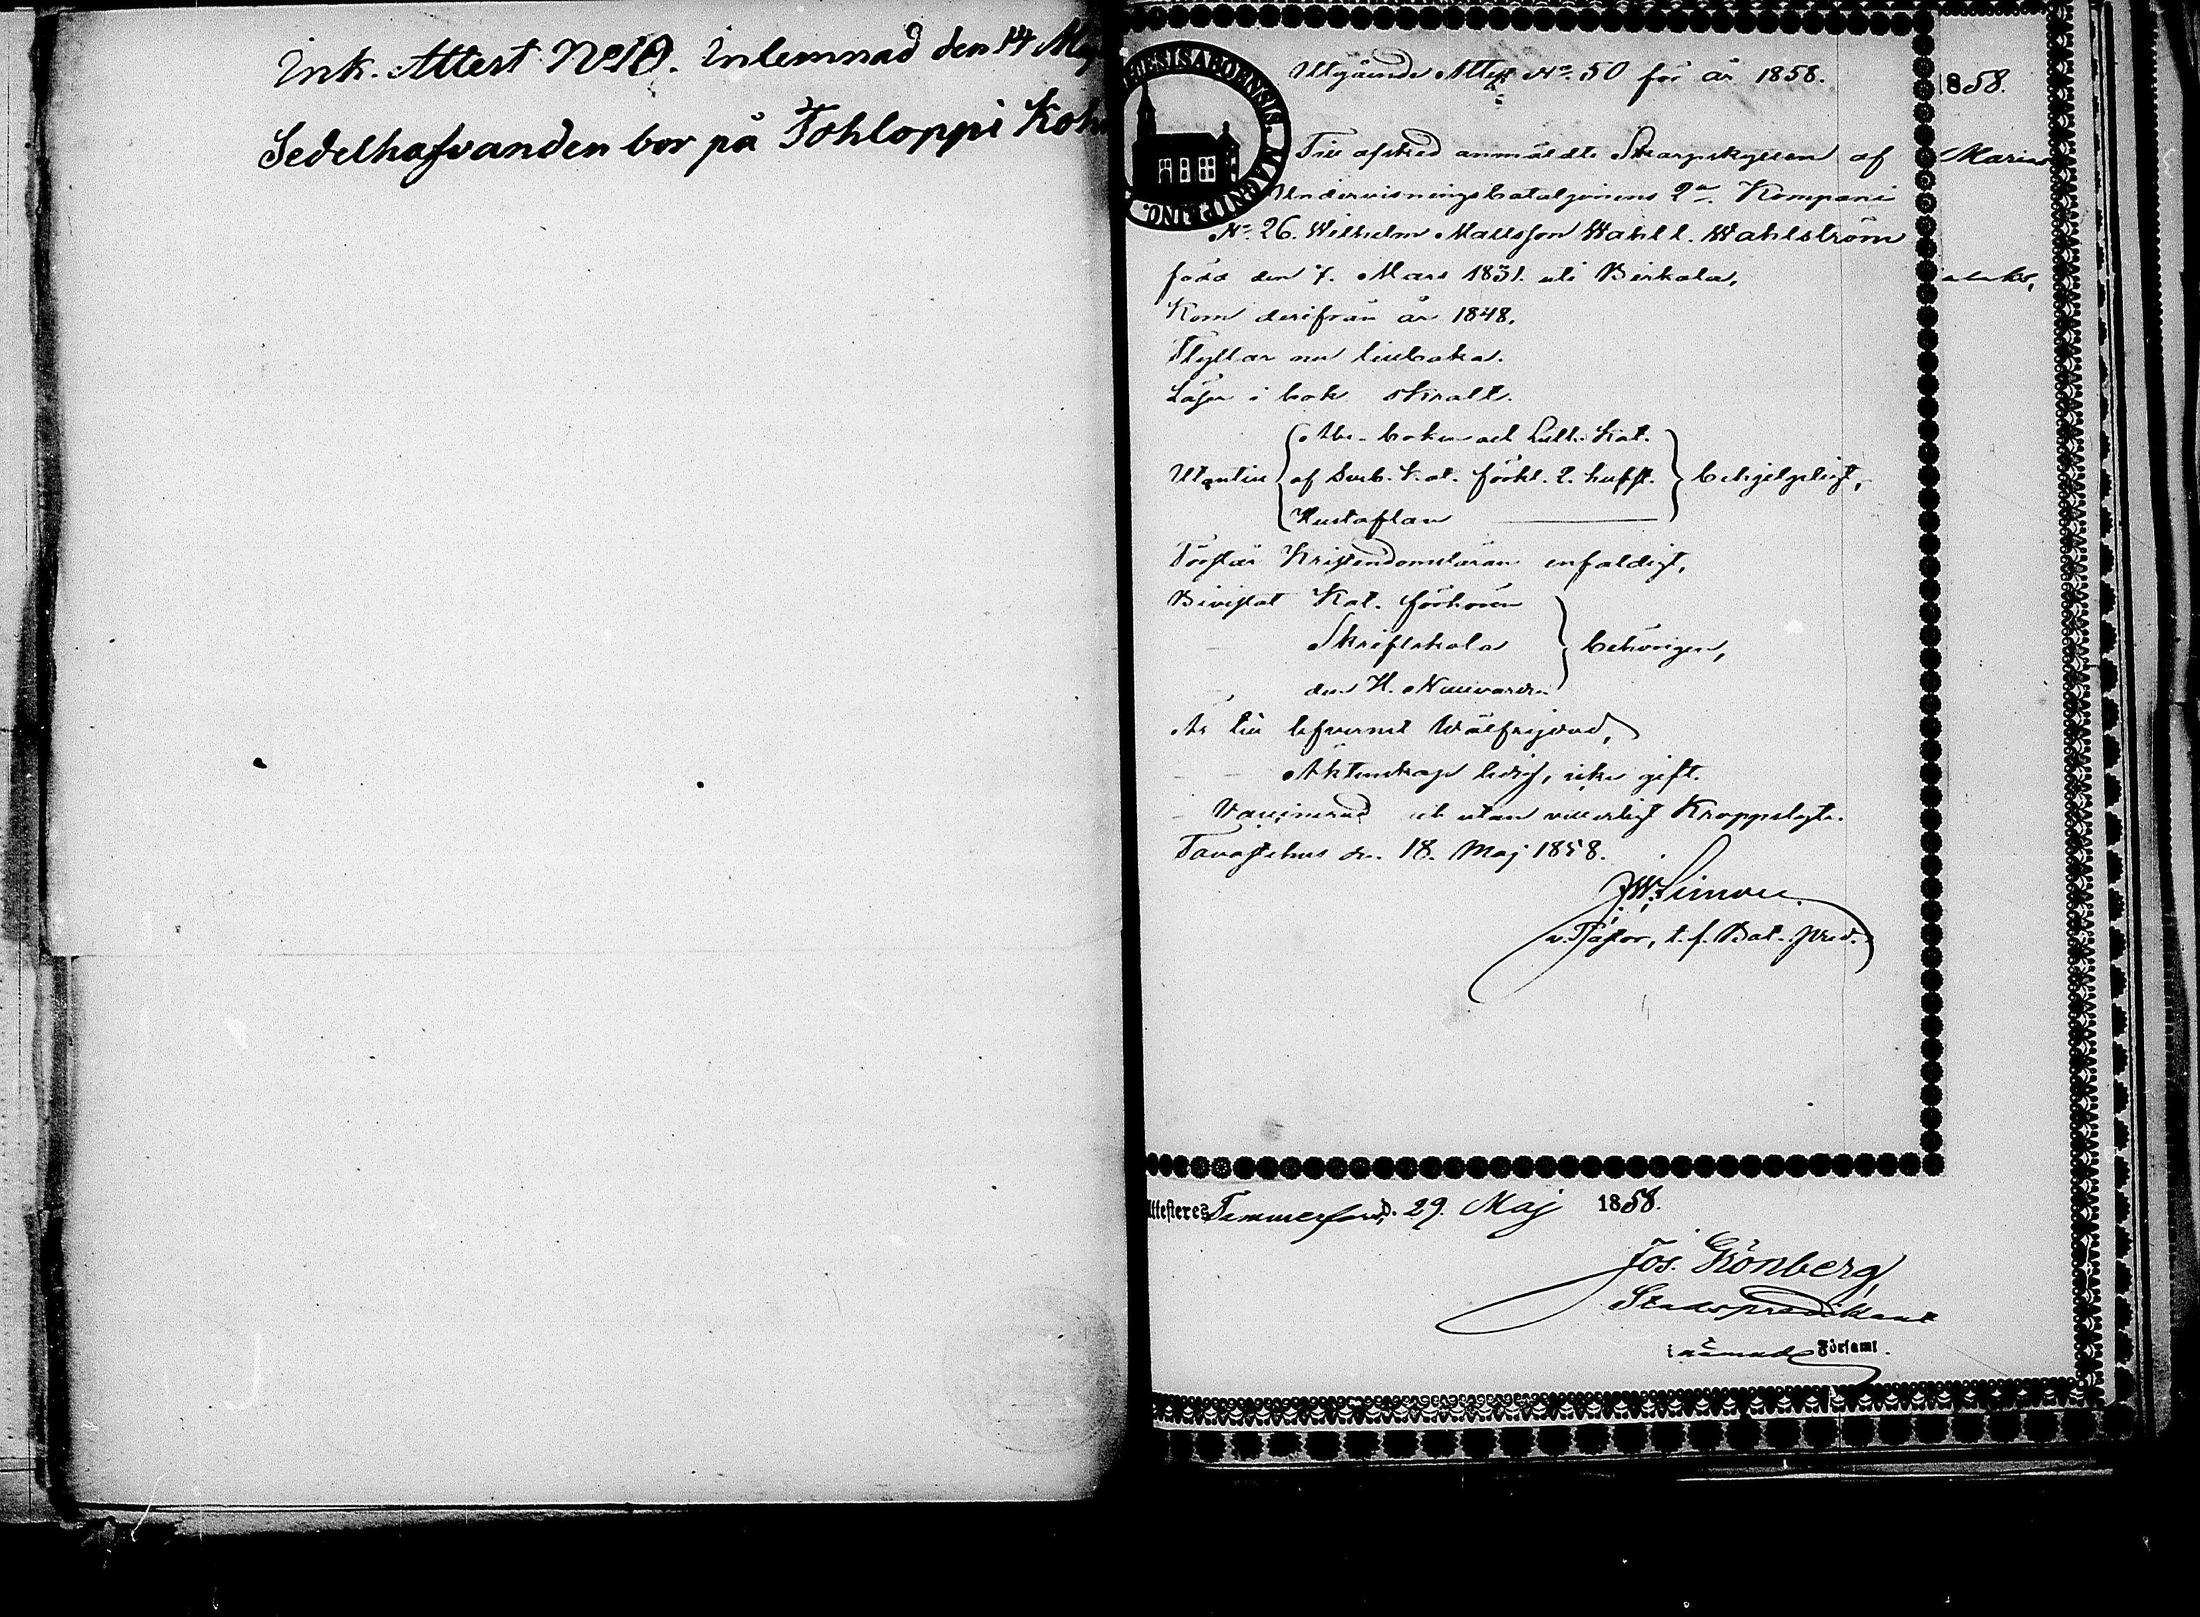 Ink. Attest No 10. Inlemnad den 14 Maj
Sedelhafvanden bor på Tohloppi Koh
Utgående Attest No. 50 för år 1858.
Till afsked anmäldte Skarpskytten af
Undervisningsbataljonens 2a Kompani
No. 26. Wilhelm Mattsson Wahl l. Wahlström
född den 7. Mars 1831. uti Birkala,
Kom derifrån år 1848.
Flyttar nu tillbaka.
Läser i bok skralt.
Abc-boken och Luth. Kat.
Utantill af Sveb. Kat. förkl. 2. hufst. behjelpeligt,
Hustaflan
Förstår Kristendomsläran enfaldigt,
Bivistat Kat. förhören
Skriftskola behörigen,
den H. Nattvarden
Är till lefvernet Wälfrejdad,
Äktenskap ledig, icke gift.
Vaccinerad och utan vederligt Kroppslyte.
Tavastehus den 18. Maj 1858.
v. Pastor, t. f. Bat. Pred.
1858.
Attesteres Tammerfors d. 29. Maj 1858.
Jos. Grönberg
Stadspredikant
i Församl.